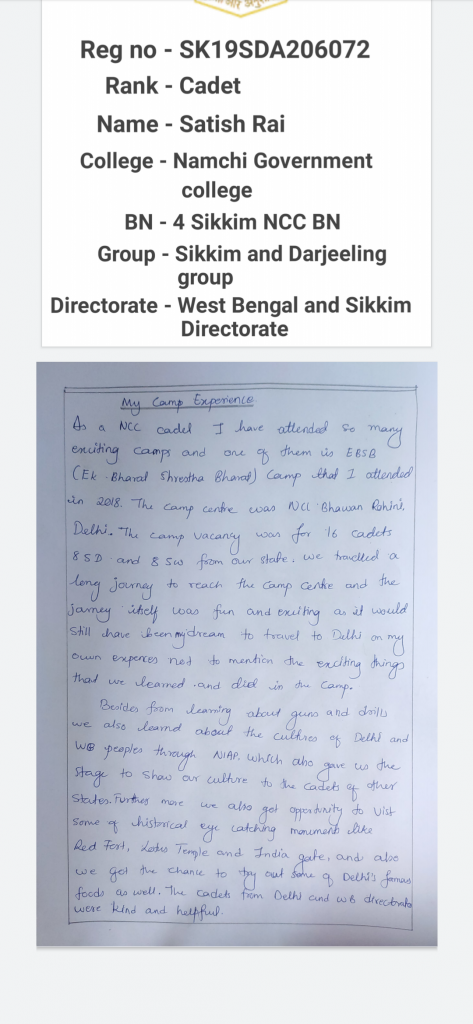 Reg no - SK19SDA206072
Rank - Cadet
Name - Satish Rai
College - Namchi Government
college
BN - 4 Sikkim NCC BN
Group - Sikkim and Darjeeling
group
Directorate - West Bengal and Sikkim
Directorate
My Camp Experience
As a NCC cadet I have attended so many
exciting camps and one of them is EBSB
(Ek Bharat Shrestha Bharat) Camp that I attended
in 2018. The camp centre was NCC Bhawan Rohini,
Delhi. The camp vacancy was for 16 cadets
8 SD and 8 SW from our state. we travelled a
long journey to reach the camp centre and the
jarney itself was fun and exciting as it would
still have been my dream to travel to Delhi on my
own expences not to mention the exciting things
that we learned and did in the Camp.
Besides from learning about guns and drills
we also learned about the cultures of Delhi and
WB peoples through NIAP. which also gave us the
stage to show our culture to the cadets of other
states. Further more we also got opportunity to vist
some of historical eye catching monument like
Red Fort, Lotus Temple and India gate, and also
we got the chance to try out some of Delhi's famous
foods as well. The cadets from Delhi and WB directorate
were kind and helpful.